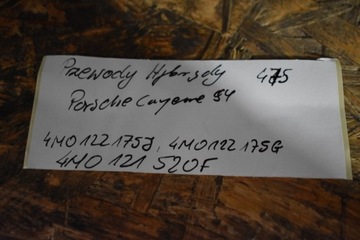 Przewody Hybrydy 475
Porsche Cayenne 94
4M0122175J, 4M0122175G
4M0121520F